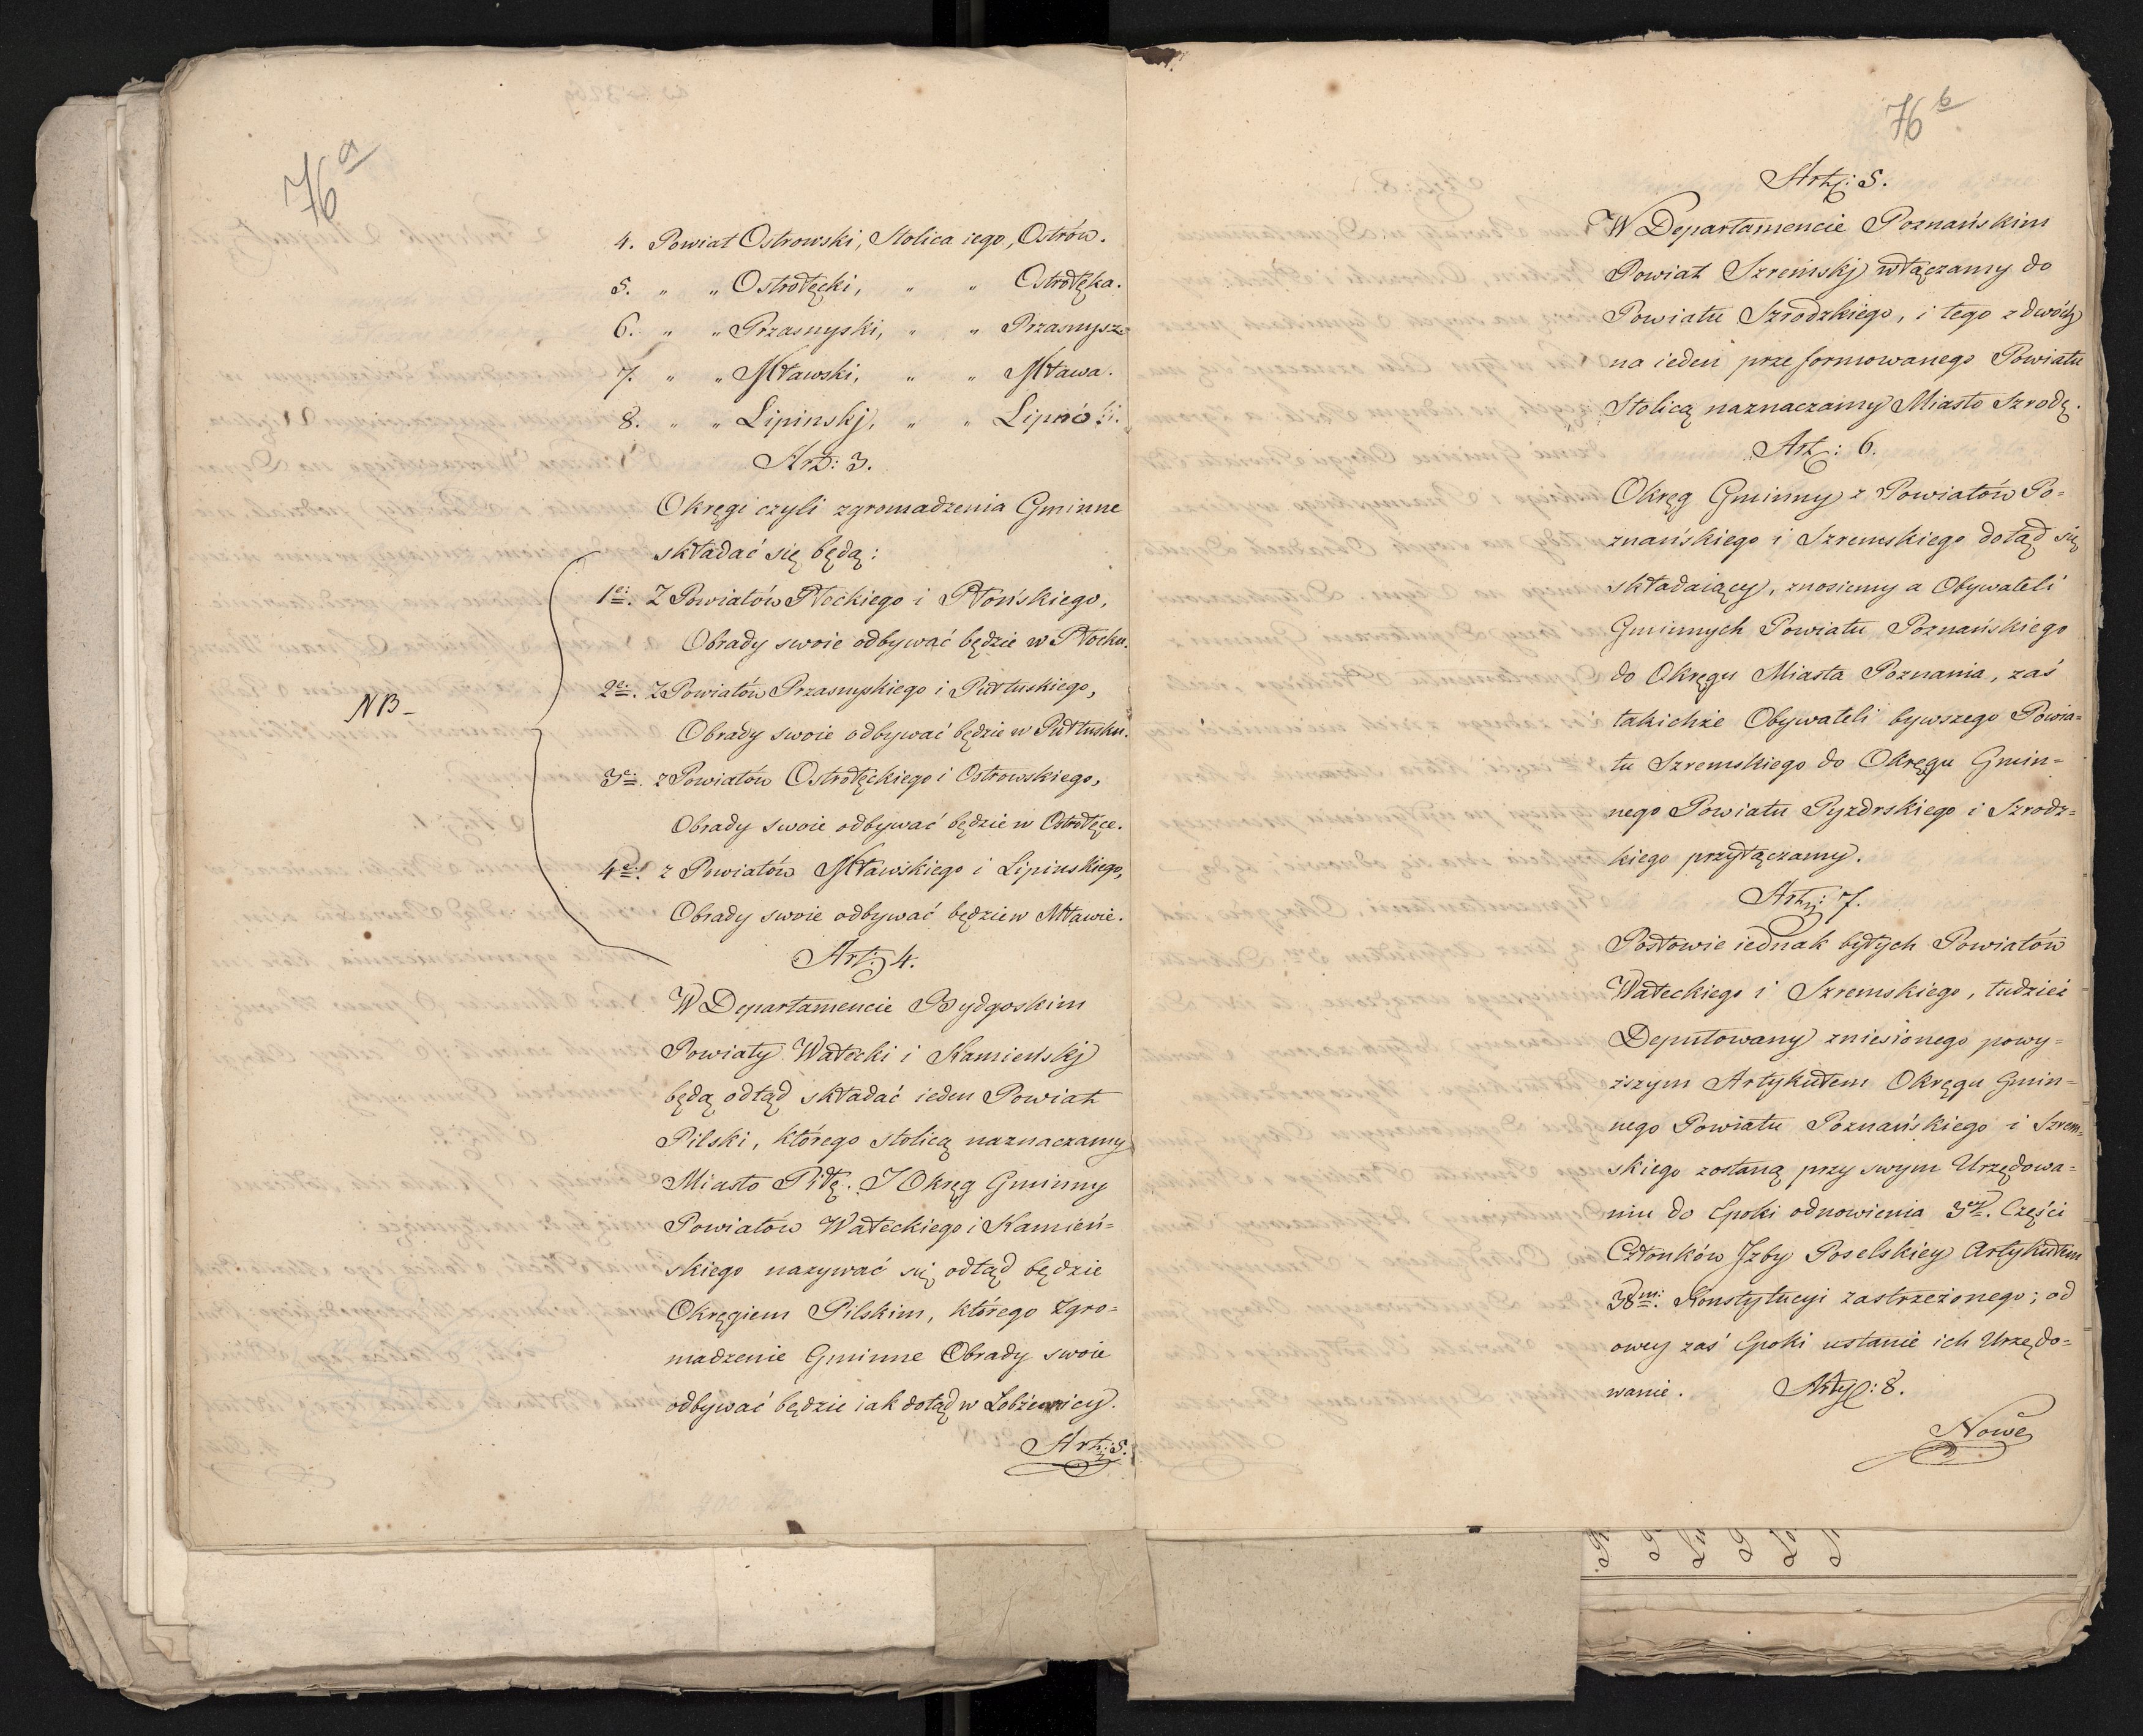 76 a
4. Powiat Ostrowski, Stolica iego, Ostrów.
5. " " Ostrołęcki, " " Ostrołęka.
6. " " Przasnyski, " " Przasnysz.
7. " " Mławski, " " Mława.
8. " " Lipinskj, " " Lipno
Art: 3.
Okręgi czyli zgromadzenia Gminne
składać się będą:
1e: Z Powiatów Płockiego i Płońskiego,
Obrady swoie odbywać będzie w Płocku.
2e: Z Powiatów Przasnyskiego i Pułtuskiego,
Obrady swoie odbywać będzie w Pułtusku.
NB
3e: z Powiatów Ostrołęckiego i Ostrowskiego,
Obrady swoie odbywać będzie w Ostrołęce.
4e: z Powiatów Mławskiego i Lipinskiego,
Obrady swoie odbywać będzie w Mławie.
Art: 4.
W Departamencie Bydgoskim
Powiaty Wałecki i Kamieńskj
będą odtąd składać ieden Powiat
Pilski, którego stolicą naznaczamy
Miasto Piłę. I Okręg Gminny
Powiatów Wałeckiego i Kamień=
skiego nazywać się odtąd będzie
Okręgiem Pilskim, którego Zgro=
madzenie Gminne Obrady swoie
odbywać będzie iak dotąd w Lobżenicy.
Art: 5.
76 b
Art: 5.
W Departamencie Poznańskim
Powiat Szremskj włączamy do
Powiatu Szrodzkiego, i tego z dwóch
na ieden przeformowanego Powiatu
Stolicą naznaczamy Miasto Szrodę.
Art: 6.
Okręg Gminny z Powiatów Po=
znańskiego i Szremskiego dotąd się
składaiący, znosiemy a Obywateli
Gminnych Powiatu Poznańskiego
do Okręgu Miasta Poznania, zaś
takichże Obywateli bywszego Powia=
tu Szremskiego do Okręgu Gmin=
nego Powiatu Pyzdrskiego i Szrodz=
kiego przyłączamy.
Art: 7.
Posłowie iednak byłych Powiatów
Wałeckiego i Szremskiego, tudzież
Deputowany zniesionego powy=
ższym Artykułem Okręgu Gmin=
nego Powiatu Poznańskiego i Szrem=
skiego zostaną przy swym Urzędowa=
niu do Epoki odnowienia 3ey. Części
Członków Jzby Poselskiey Artykułem
38m: Konstytucyi zastrzeżonego; od
owey zaś Epoki ustanie ich Urzędo=
wanie. Arty: 8.
Nowe